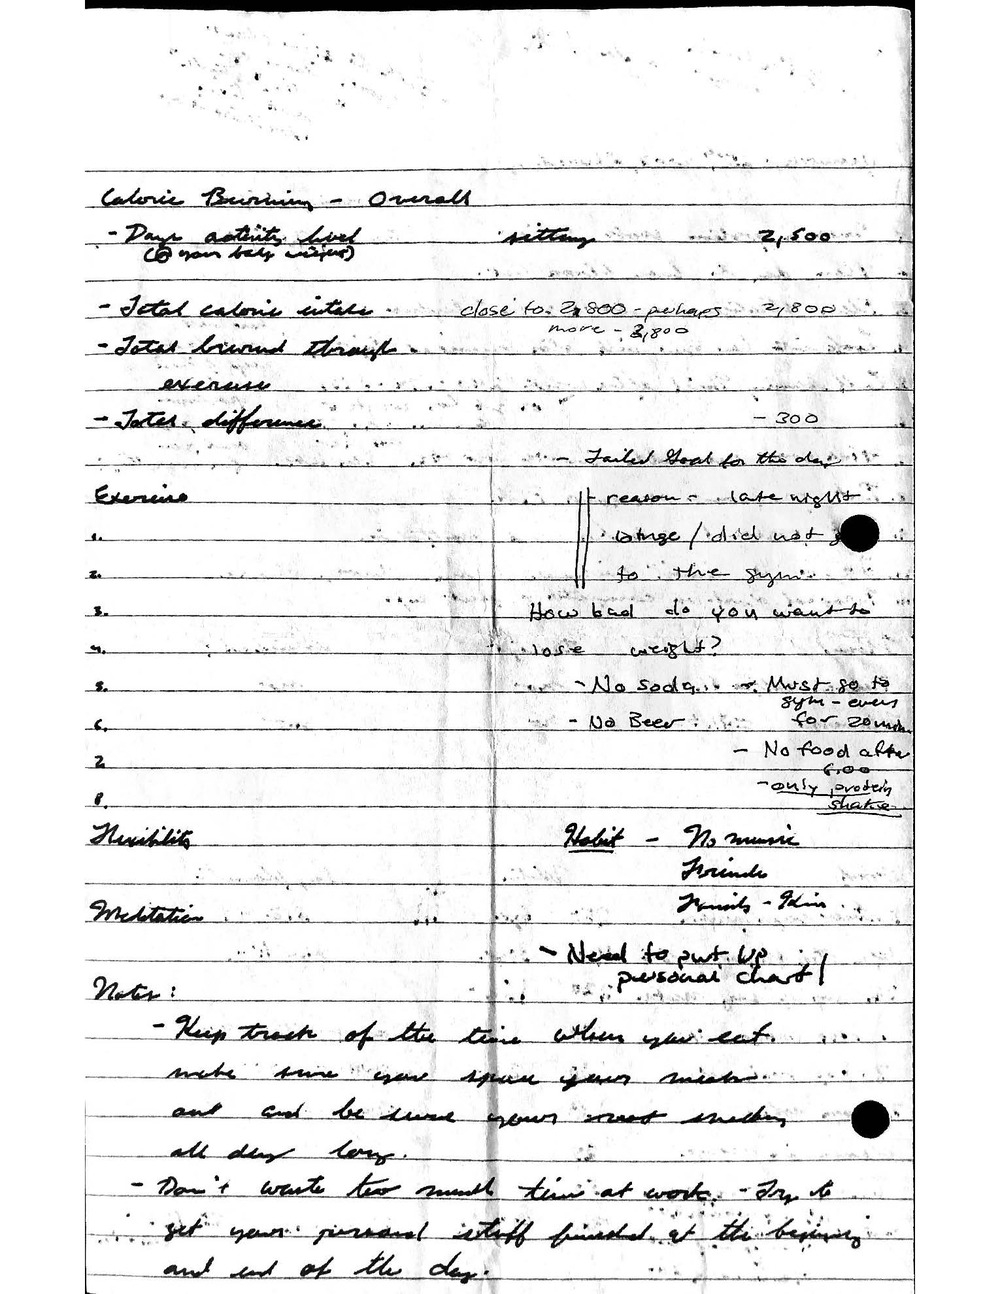 Calorie Burning - Overall
- Days activity level sitting 2,500
(@ your body weight)
- Total calorie intake close to 2,800 - perhaps 2,800
more - 3,800
- Total burned through
exercise
- Total difference - 300
- Failed Goal for the day
Exercise reason - late night
1. binge / did not
2. to the gym.
3. How bad do you want to
4. lose weight?
5. - No soda - Must go to
gym - even
6. - No Beer for 20 min
7. - No food after
6:00
- only protein
8. shake
Flexibility Habit - No music
Friends
Meditation Family -
- Need to put up
personal chart!
Notes:
- Keep track of the time when you eat.
make sure you space your meals
out and be sure your not snacking
all day long.
- Don't waste too much time at work. - Try to
get your personal stuff finished at the beginning
and end of the day.